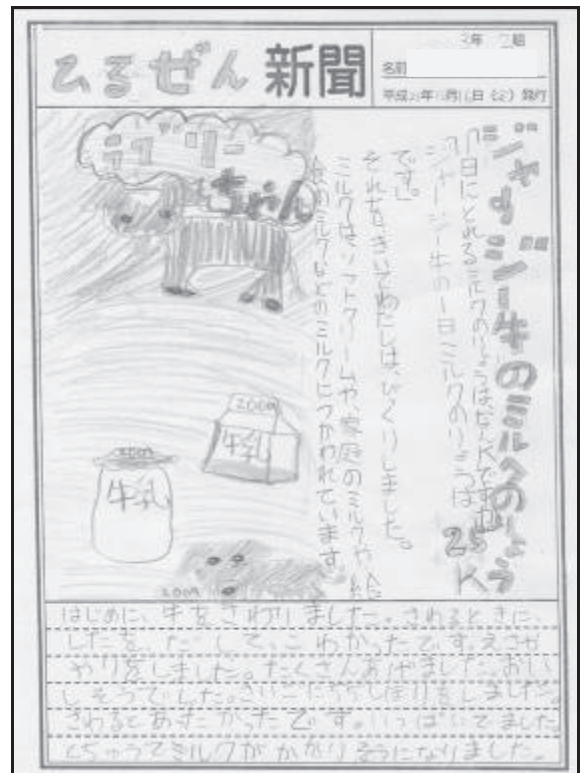 ひるぜん新聞
3年 組
名前
平成 年 月 日 発行
ジャージー牛のミルクのりょう
「1日にとれるミルクのりょうは、なんKですか。」
「ジャージー牛の1日ミルクのりょうは
25K
です。」
それをきいてわたしは、びっくりしました。
ミルクはソフトクリームや、家庭のミルクや
のミルクなどのミルクにつかわれています。
ラブリー
ちゃん
2009
牛乳
牛乳
2009
はじめに、牛をさわりました。さわるときに、
したを、だして、こわかったです。えさが
やりをしました。たくさんあげました。おい
しそうでした。さいごにちちしぼりをしました。
さわるとあたたかったです。いっぱいでました。
とちゅうでミルクがかかりそうになりました。